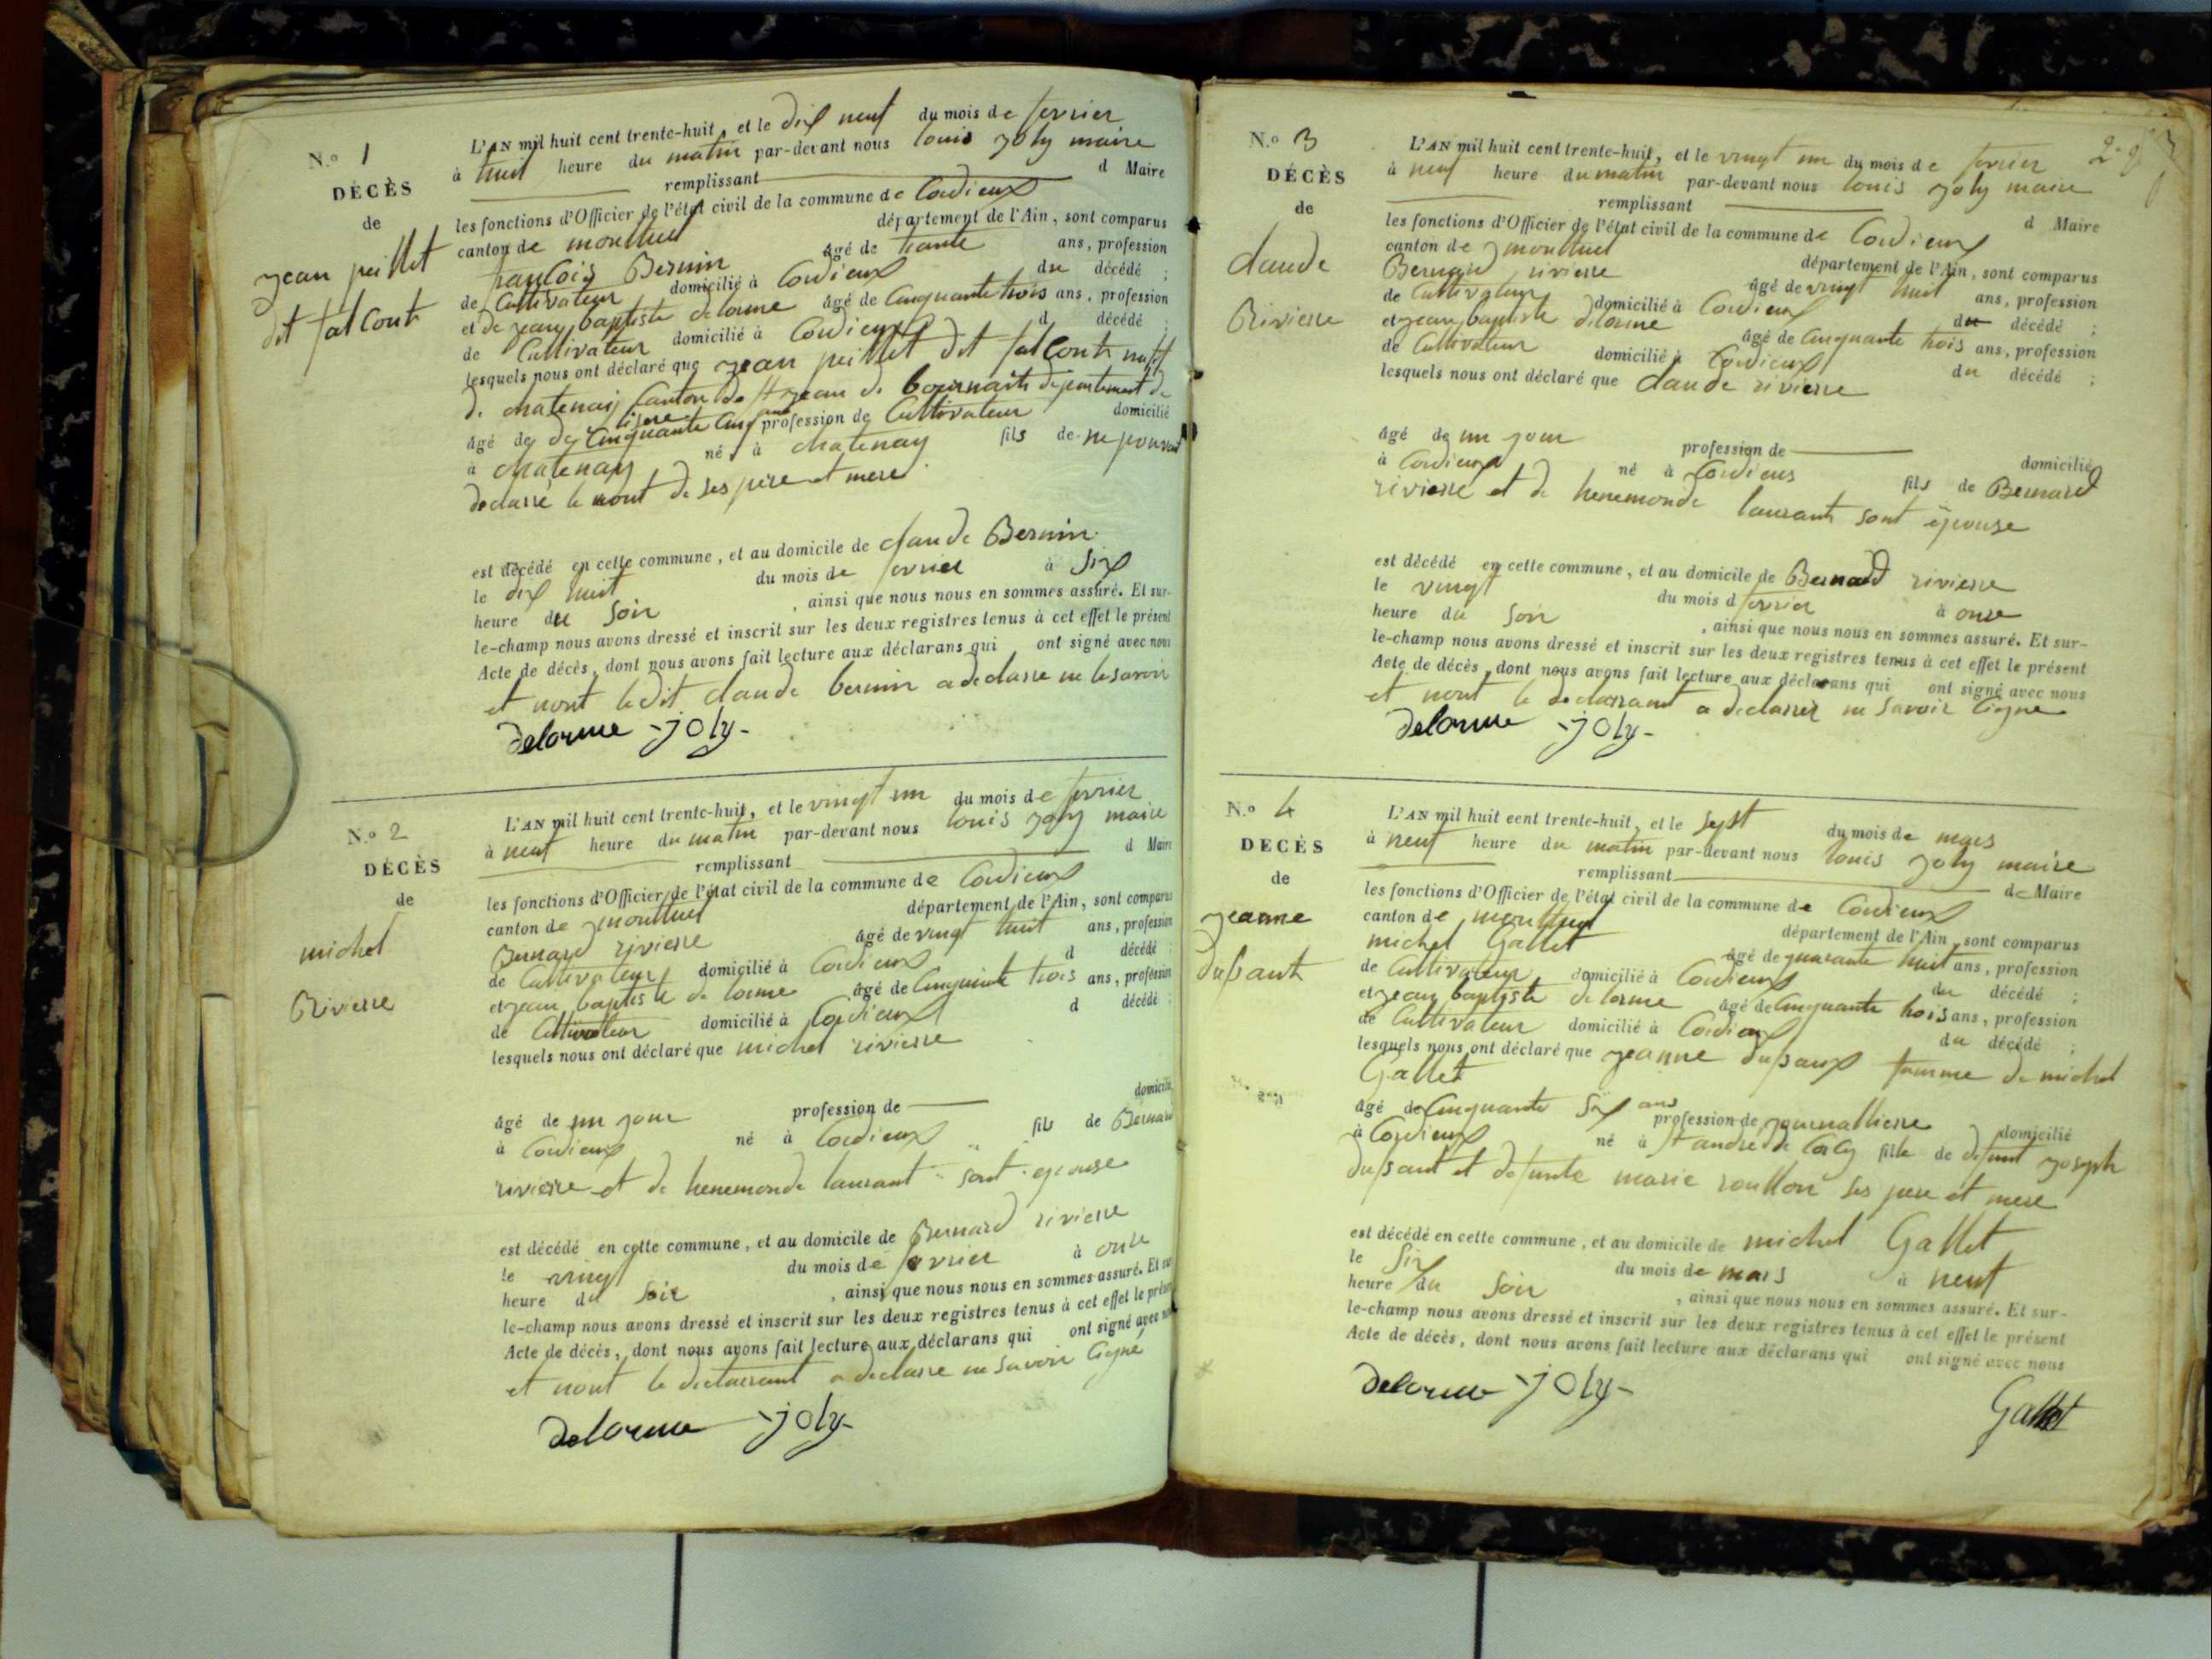 N.º 1
DÉCÈS
de
jean peillet
dit falcont
L'AN mil huit cent trente-huit, et le dix neuf du mois de fevrier
à huit heure du matin par-devant nous louis joly maire
remplissant d Maire
les fonctions d'Officier de l'état civil de la commune de Cordieux
canton de montluel département de l'Ain, sont comparus
francois Bernin âgé de trante ans, profession
de Cultivateur domicilié à Cordieux du décédé ;
et de jean baptiste delorme âgé de Cinquante trois ans, profession
de Cultivateur domicilié à Cordieux d décédé ;
lesquels nous ont déclaré que jean peillet dit falcont natif
de chatenay Canton de st jean de bournait departement de
isere
âgé de Cinquante Cinq ans profession de Cultivateur domicilié
à chatenay né à chatenay fils de ne pouvant
declarré le nont de ses pere et mere
est décédé en cette commune, et au domicile de claude Bernin
le dix huit du mois de fevrier à Six
heure du Soir , ainsi que nous nous en sommes assuré. Et sur-
le-champ nous avons dressé et inscrit sur les deux registres tenus à cet effet le présent
Acte de décès, dont nous avons fait lecture aux déclarans qui ont signé avec nous
et nont ledit claude bernin a declarre ne le savoir
Delorme -joly-
N.º 2
DÉCÈS
de
michel
Rivierre
L'AN mil huit cent trente-huit, et le vingt un du mois de fevrier
à neuf heure du matin par-devant nous louis joly maire
remplissant d Maire
les fonctions d'Officier de l'état civil de la commune de Cordieux
canton de montluel département de l'Ain, sont comparus
Bernard rivierre âgé de vingt huit ans, profession
de Cultivateur domicilié à Cordieux d décédé ;
et jean baptiste de lorme âgé de Cinquante trois ans, profession
de Cultivateur domicilié à Cordieux d décédé ;
lesquels nous ont déclaré que michel rivierre
âgé de un jour profession de domicilié
à Cordieux né à Cordieux fils de Bernard
rivierre et de henemonde laurant sont epouse
est décédé en cette commune, et au domicile de Bernard rivierre
le vingt du mois de fevrier à onse
heure du Soir , ainsi que nous nous en sommes assuré. Et sur-
le-champ nous avons dressé et inscrit sur les deux registres tenus à cet effet le présent
Acte de décès, dont nous avons fait lecture aux déclarans qui ont signé avec nous
et nont le declarrant a declarre ne savoir Cigné
Delorme -joly-
N.º 3
DÉCÈS
de
claude
Rivierre
L'AN mil huit cent trente-huit, et le vingt un du mois de fevrier
à neuf heure du matin par-devant nous louis joly maire
remplissant d Maire
les fonctions d'Officier de l'état civil de la commune de Cordieux
canton de montluel département de l'Ain, sont comparus
Bernard rivierre âgé de vingt huit ans, profession
de Cultivateur domicilié à Cordieux du décédé ;
et jean baptiste delorme âgé de Cinquante trois ans, profession
de Cultivateur domicilié à Cordieux du décédé ;
lesquels nous ont déclaré que claude rivierre
âgé de un jour profession de domicilié
à Cordieux né à Cordieux fils de Bernard
rivierre et de henemonde laurant sont épouse
est décédé en cette commune, et au domicile de Bernard rivierre
le vingt du mois d fevrier à onse
heure du Soir , ainsi que nous nous en sommes assuré. Et sur-
le-champ nous avons dressé et inscrit sur les deux registres tenus à cet effet le présent
Acte de décès, dont nous avons fait lecture aux déclarans qui ont signé avec nous
et nont le declarrant a declarrer ne savoir Cigne
Delorme -joly-
N.º 4
DECÈS
de
jeanne
dusaut
L'AN mil huit cent trente-huit, et le sept du mois de mars
à neuf heure du matin par-devant nous louis joly maire
remplissant de Maire
les fonctions d'Officier de l'état civil de la commune de Cordieux
canton de montluel département de l'Ain, sont comparus
michel Gallet âgé de quarante huit ans, profession
de Cultivateur domicilié à Cordieux du décédé ;
et jean baptiste de lorme âgé de Cinquante trois ans, profession
de Cultivateur domicilié à Cordieux du décédé ;
lesquels nous ont déclaré que jeanne dusaux famme de michel
Gallet
âgé de Cinquante Six ans profession de journalliere domicilié
à Cordieux né à St andre de Corcy fille de defunt joseph
dusaut et defunte marie roullon ses pere et mere
est décédé en cette commune, et au domicile de michel Gallet
le Six du mois de mars à neuf
heure du Soir , ainsi que nous nous en sommes assuré. Et sur-
le-champ nous avons dressé et inscrit sur les deux registres tenus à cet effet le présent
Acte de décès, dont nous avons fait lecture aux déclarans qui ont signé avec nous
Delorme -joly-
Gallet